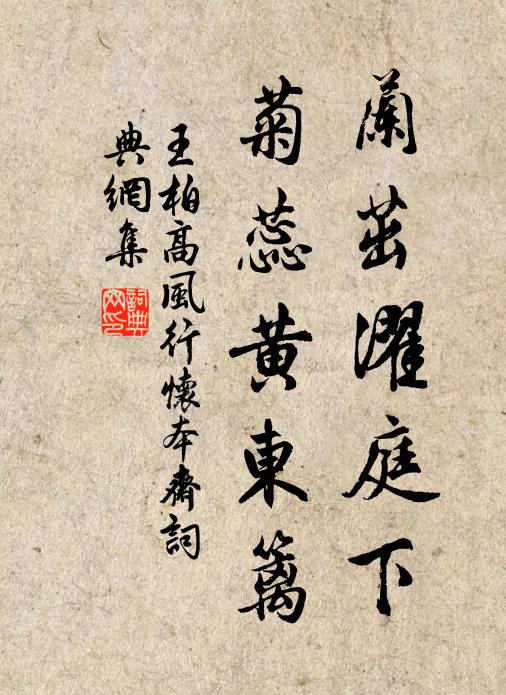 蘭茁濯庭下
菊蕊黄東籬
王柏高風行懷本齋詞
典網集
詞典
网印